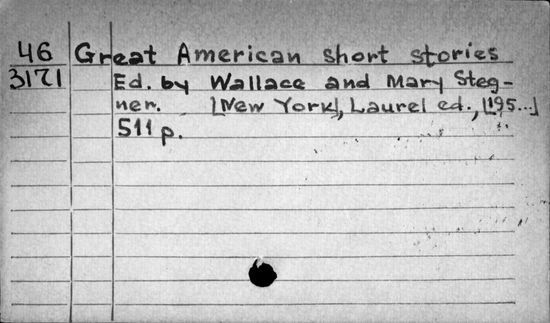 46 Great American short stories
3171 Ed. by Wallace and Mary Steg-
ner. [New York], Laurel ed., [195...]
511 p.